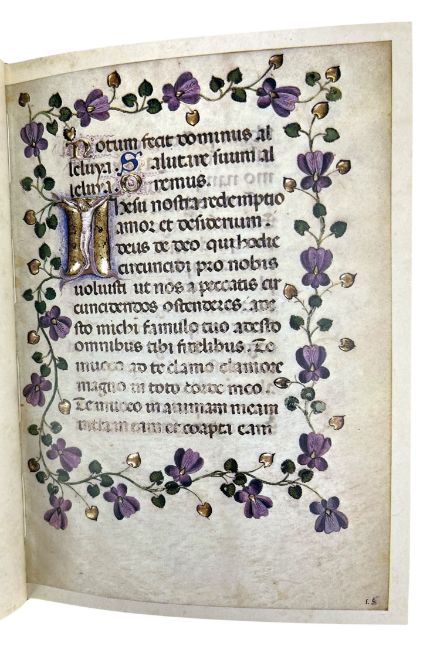 Notum fecit dominus al
leluya. Salutare suum al
leluya. Oremus.
Ihesu nostra redemptio
amor et desiderium.
deus de deo qui hodie
circuncidi pro nobis
voluisti ut nos a peccatis cir
cuncidendos ostenderes: ade
sto michi famulo tuo adesto
omnibus tibi fidelibus. Te
invoco ad te clamo clamore
magno in toto corde meo.
Te invoco in animam meam
intra in eam et coapta eam